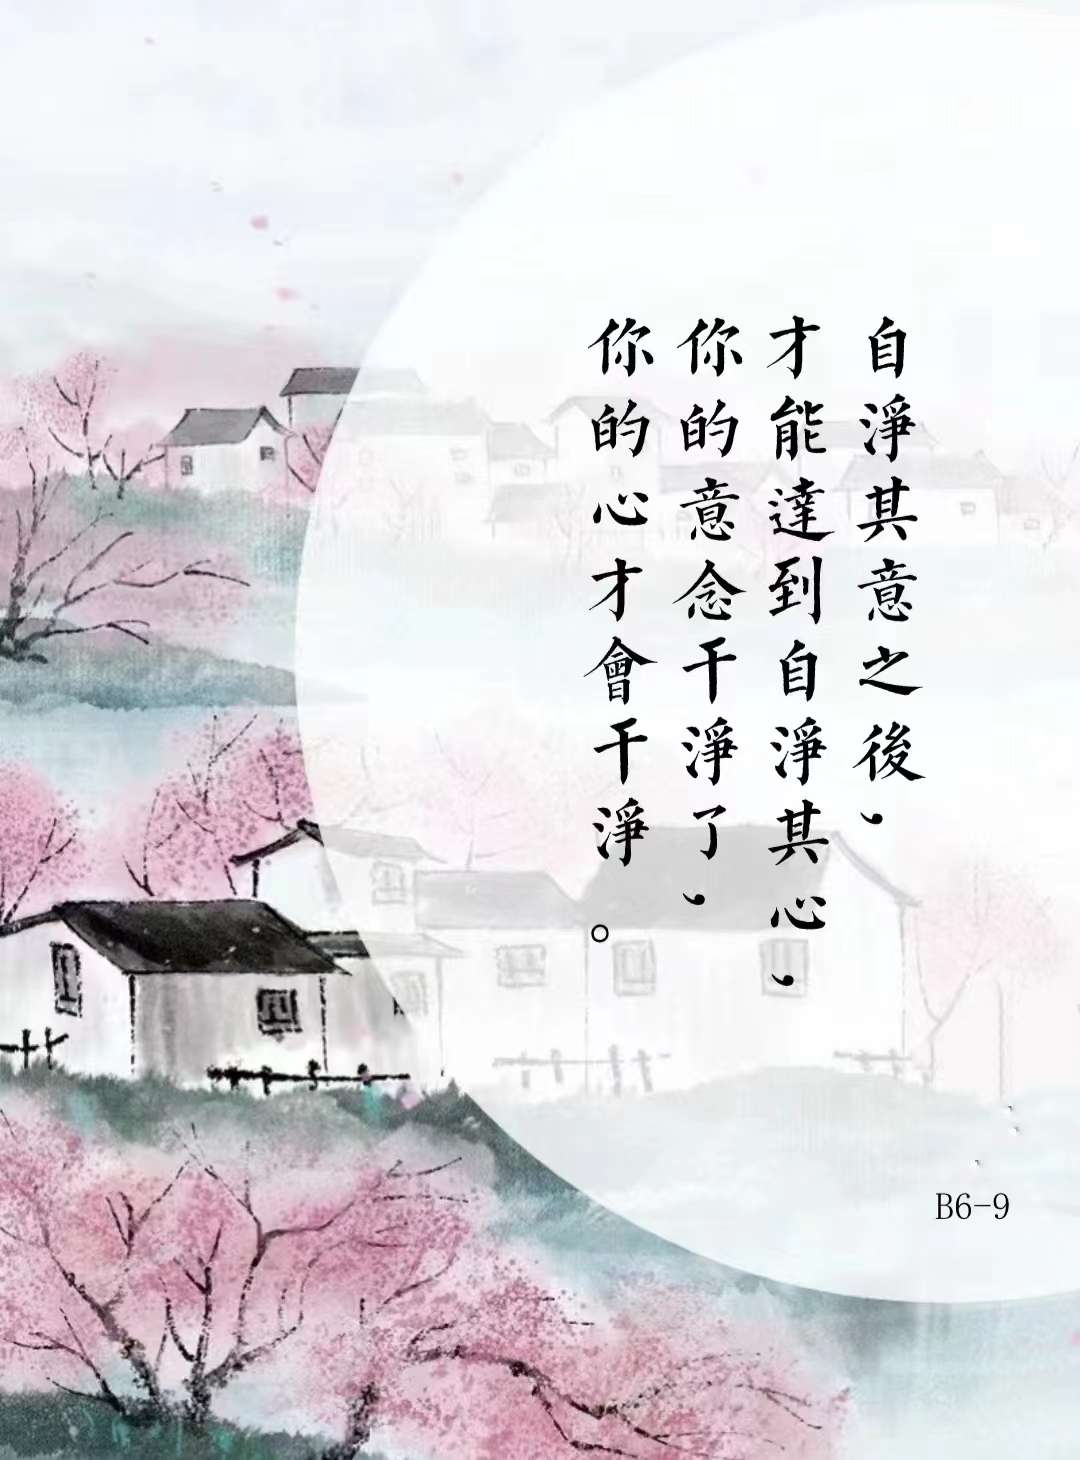 自淨其意之後，
才能達到自淨其心，
你的意念干淨了，
你的心才會干淨。
B6-9